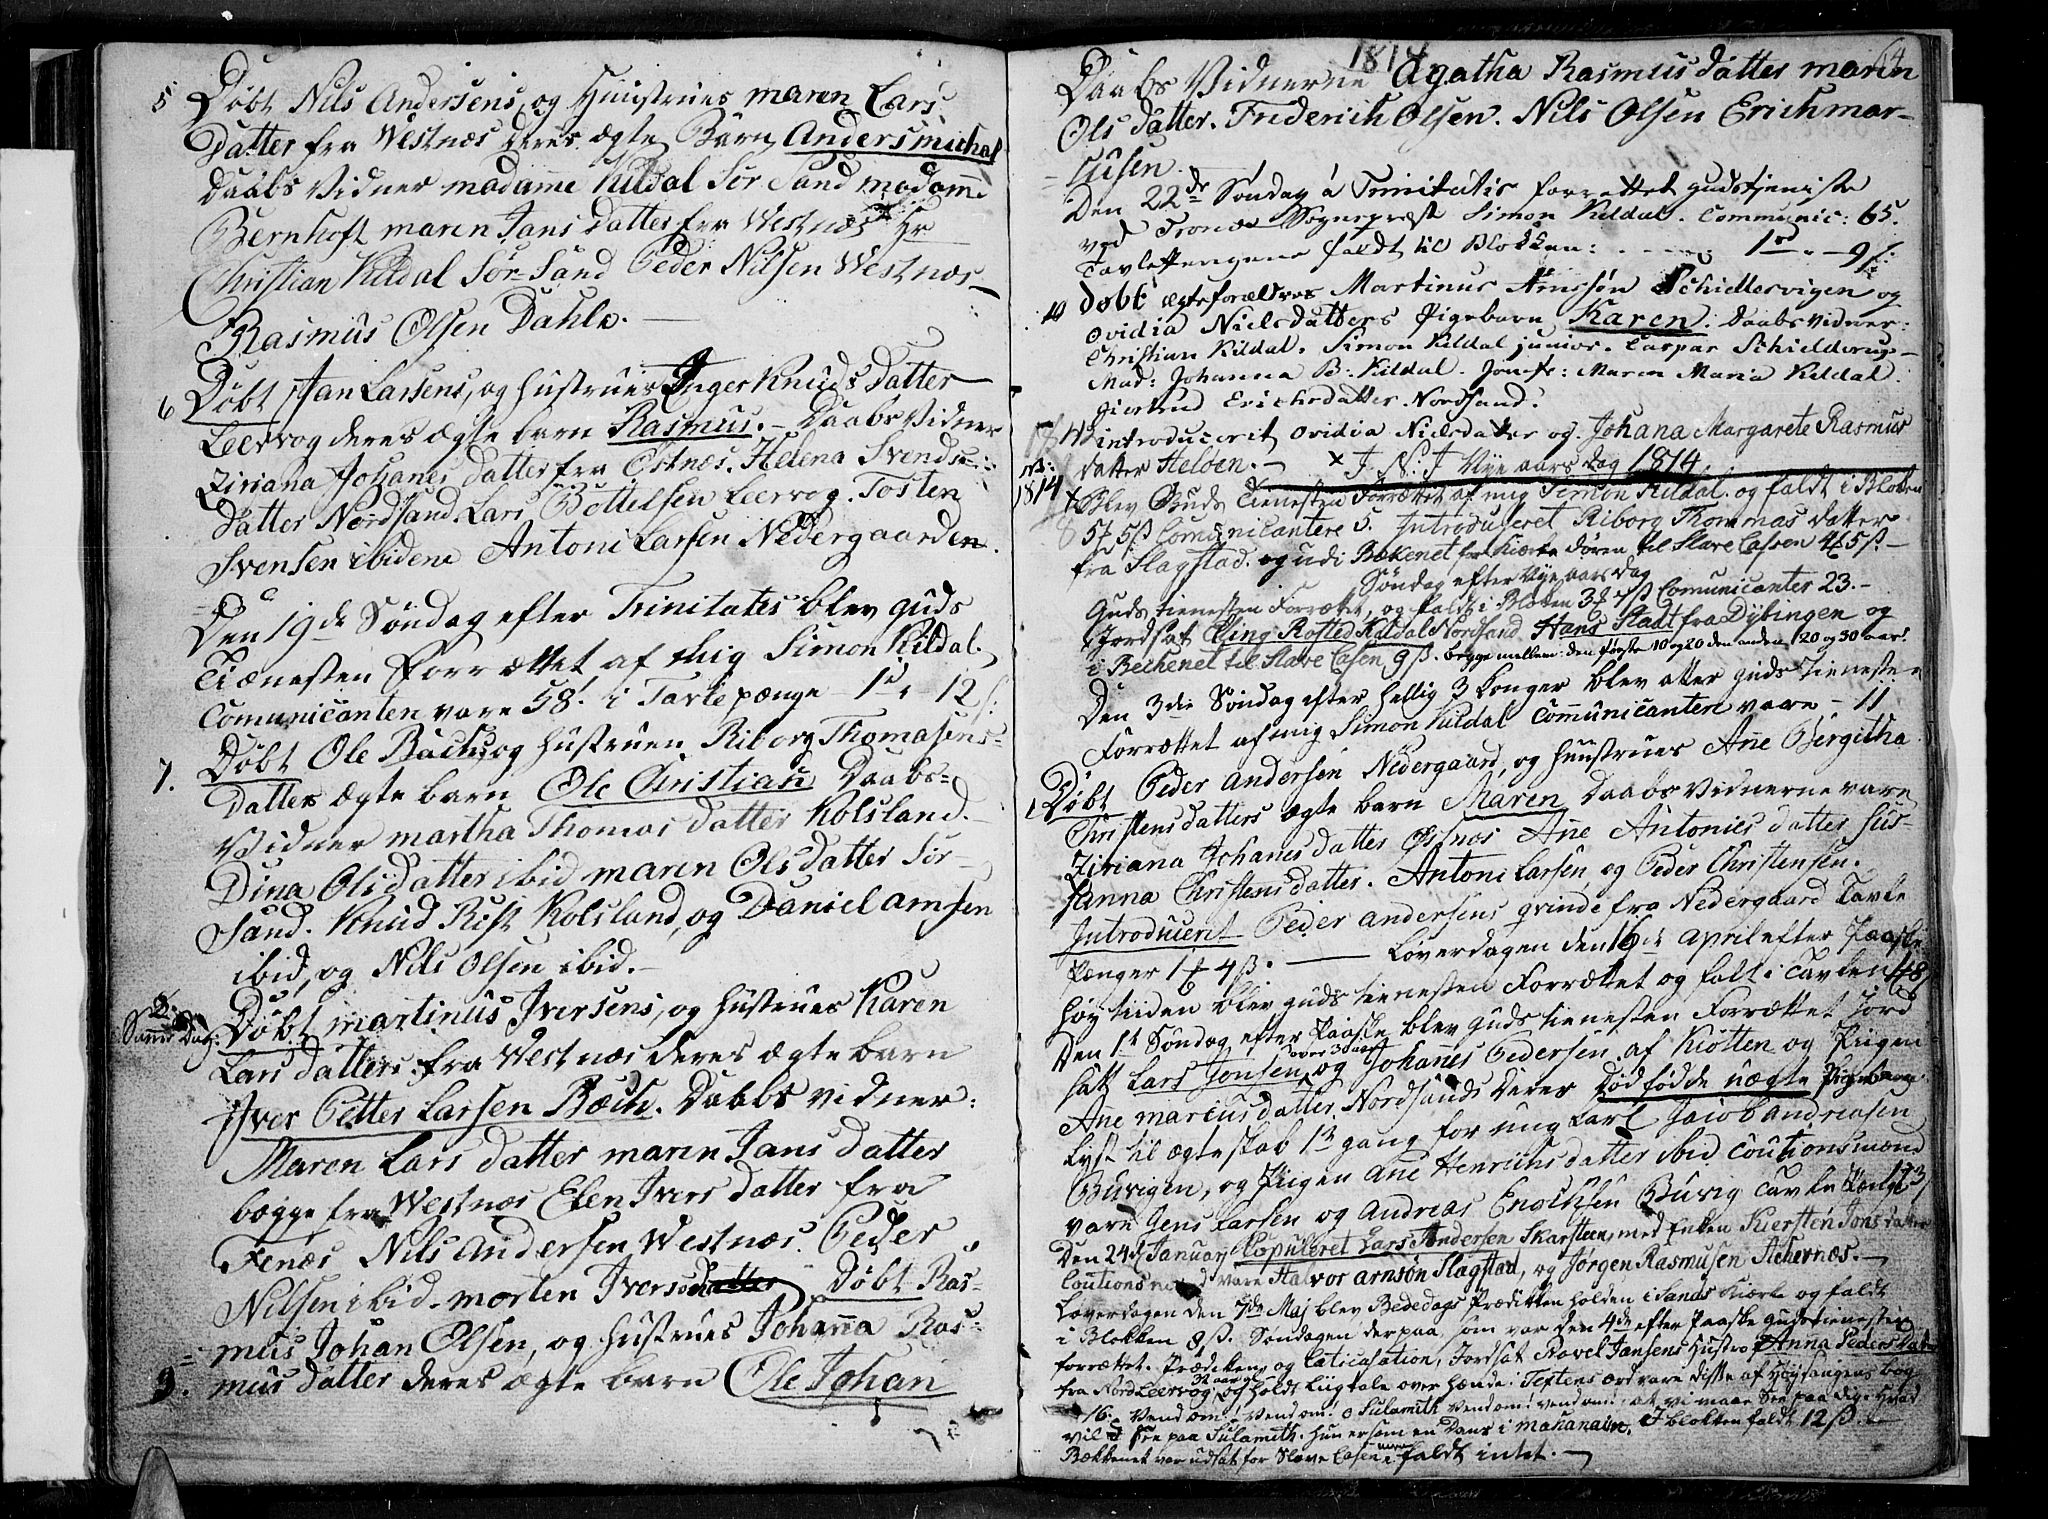 5 Døbt Nils Andersens, og Hustrues maren Lars
Datter fra Westnæs deres ægte Barn Andersmichal
Daabs Vidner madamme Kildal Sør Sand madamme
Bernhoft maren Jans Datter fra Westnæs Hr
Christian Kildal Sør-Sand Peder Nilsen Westnæs
Rasmus Olsen Dahle.
6 Døbt Jan Larsens, og hustrues Inger Knuds Datter
Leervog deres ægte barn Rasmus. Daabs Vidner
Ziriana Johanes datter fra Østnæs. Helena Svends
Datter Nordsand. Lars Bottelsen Leervog. Tosten
Svensen ibidene Antoni Larsen Nedergaarden.
Den 19de Søndag efter Trinitates blev guds
Tiænesten Forrættet af Mig Simon Kildal.
Comunicanten vare 58. i Tavlepænge 1 12
7. Døbt Ole Bachs, og hustruen Riborg Thomasens-
Datters ægte barn Ole Christian Daabs-
Vidner martha Thomas datter Kolsland.
Dina Olsdatter ibid maren Olsdatter Sør-
Sand. Knud Rist Kolsland, og Daniel arnsen
ibid, og Nils Olsen ibid.
Samme Dag: Døbt martinus Iversens, og hustrues Karen
Lars datters fra Westnæs deres ægte barn
Iver Petter Larsen Bæch. Daabs vidner:
Maren Lars datter maren Jans datter
begge fra Westnæs Elen Ivers datter fra
Fenæs Nils Andersen Westnæs. Peder
Nilsen ibid. morten Iversøn Døbt Ras-
mus Johan Olsen, og hustrues Johanna Ras-
9. mus datter deres ægte barn Ole Johan
1814
Daabs Vidnerne Agatha Rasmus datter maren
Ols datter. Friderich Olsen. Nils Olsen Erich mar-
cusen.
Den 22de Søndag á Trinitatis forrettet gudstjeniste
ved Tronæ Sognepræst Simon Kildal. Communic: 65.
Tavlepengene faldt til Blokken: 1 - 9
10 Døbt ægteforældres Martinus Arnsøn Schiellesvigen og
Ovidia Nielsdatters Pigebarn Karen. Daabsvidner:
Christian Kildal. Simon Kildal junior. Caspar Schielderup
Mad: Johanna B: Kildal. Jomfr: Maren Maria Kildal.
Giertrud Erichsdatter Nordsand.
introducerit Ovidia Nielsdatter og Johana Margarete Rasmus
datter Heløen. J. N. J Nye aars dag 1814
1814 Blev Guds Tienesten Forrættet af mig Simon Kildal. og faldt i Blokken
5 Comunicantere 5. Introduseret Riborg Thommas datter
fra Slagstad. og udi Bekenet for Kierke døren til Slave Cassen 4 5
Søndag efter Nye aars dag
Guds tienesten Forrættet, og faldt i Bloken 3 Comunicanter 23.
Jordsat Eling Rosted Kildal Nordsand. Hans Stadt fra Dybingen og
i Bechenet til Slave Casen 9 ß. begge mellem: den første 10 og 20 den anden 20 og 30 aar
Den 3die Søndag efter hellig 3 konger blev atter guds tieneste
Forrættet af mig Simon Kildal Communicanten vare - 11
1 Døbt Peder Andersen Nedergaard, og huustrues Ane Bergitha
Christensdatters ægte barn Maren Daabs Vidnerne vare
Ziriana Johanes datter Østnæs Ane Antonies datter Sus-
Janna Christens datter. Antoni Larsen, og Peder Christensen.
Introducerit Peder Andersens qvinde fra Nedergaard Tavle
Pænger 1 4 ß. Løverdagen den 16de April efter Paaske
Høytiden blev guds tienesten Forrættet og falt i Tavlen 48
Den 1t Søndag efter Paaske blev guds tienesten Forrættet Jord
over 30 aar
satt Lars Jonsen, og Johanes Pedersen af Kiøtten og Piigen
Ane marcus datter Nordsands deres dødfødde uægte Pigebarn
Lyst til ægteskab 1t gang for ung karl Jacob andreasen
Buvigen, og Piigen Ane Henriens datter ibid Coutionsmænd
vare Jens Larsen og Andreas Enochsen Buvig Tavle Pænge
Den 24de January Copuleret Lars Andersen Skarsteen, med Enken Kiersten Jons datter
Coutionsmænd vare Halvor arnsøn Slagstad, og Jørgen Rasmusen Achernæs.
Løverdagen Den 7de Maj blev Bededags Prædikken holden i Sands Kiørke og faldt
i Blokken 8 ß. Søndagen derpaa som var den 4de efter Paaske gudstienesten
forrættet. Prædiken og Caticasation, Jordsat Pavel Jansens Hustro Anna Peders datter
32 aar gl
fra Nord Leervog, og holdt Liigtale over hænde i Teftens ord vare disse af Høysangens bog
16. Vend om! Vend om! o Sulamith vend om! vend om! at vi maae See paa dig: Hvad
vil I see paa Sulamith. hun er som en Dans i Mahanaim. I blokken faldt 12 ß.
Bækkenet var udsat for Slave Casen faldt intet.